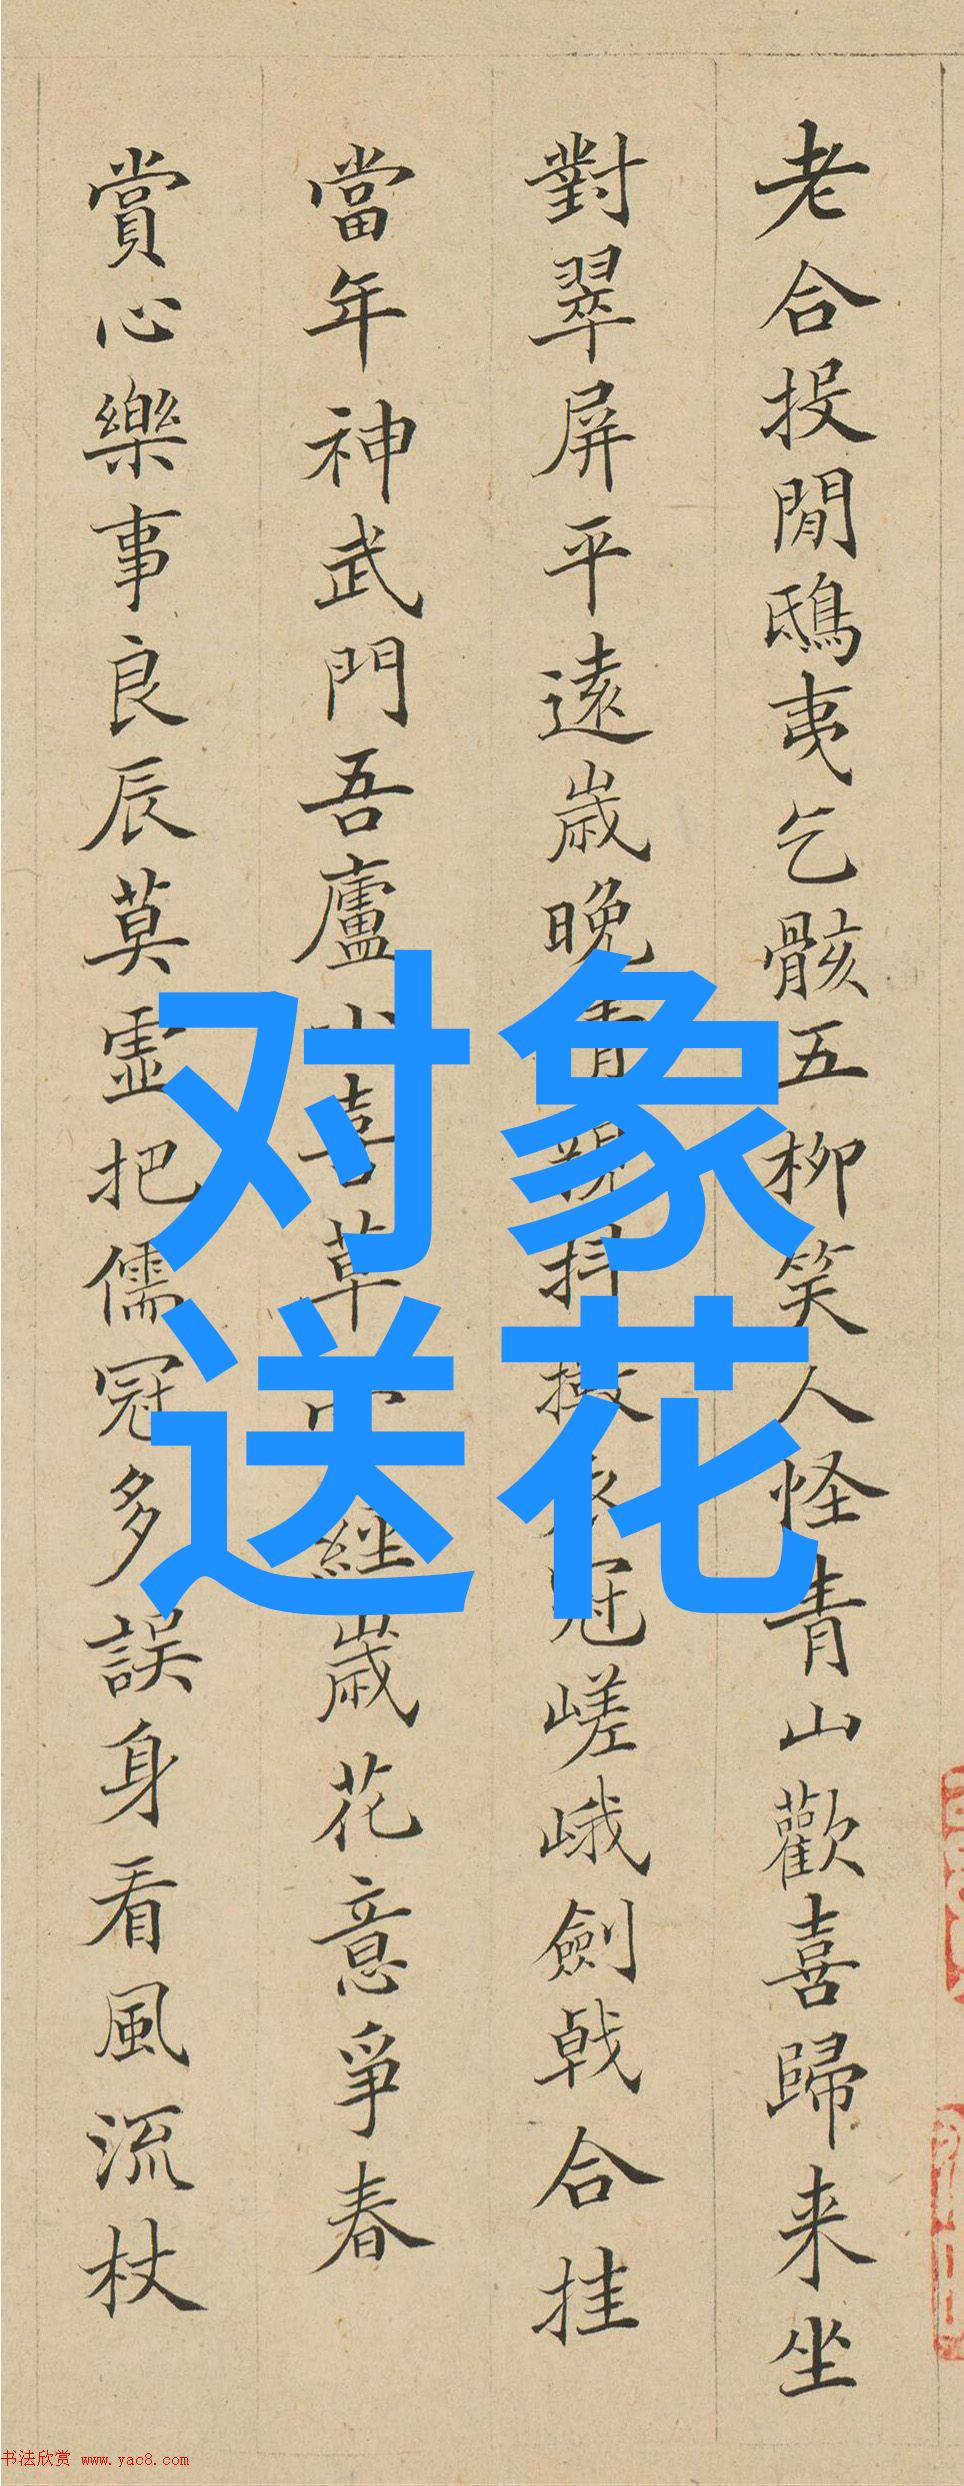 老合投閒鴟夷乞骸五柳笑人怪青山歡喜歸来坐
對翠屏平遠歲晚抖擻衣冠嵯峨劍戟合挂
當年神武門吾廬小喜草經歲花意爭春
賞心樂事良辰莫虛把儒冠多誤身看風流杖
对象
送花
书法欣赏 www.yac8.com